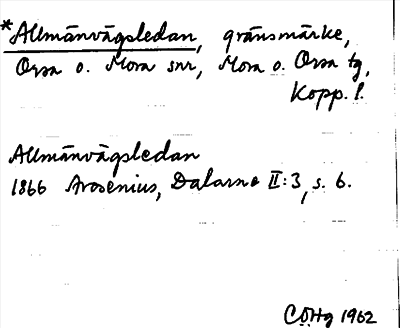 *Allmänvägsledan, gränsmärke,
Orsa o. Mora snr, Mora o. Orsa tg,
Kopp. l.
Allmänvägsledan
1866 Arosenius, Dalarne II:3, s. 6.
CÖHg 1962